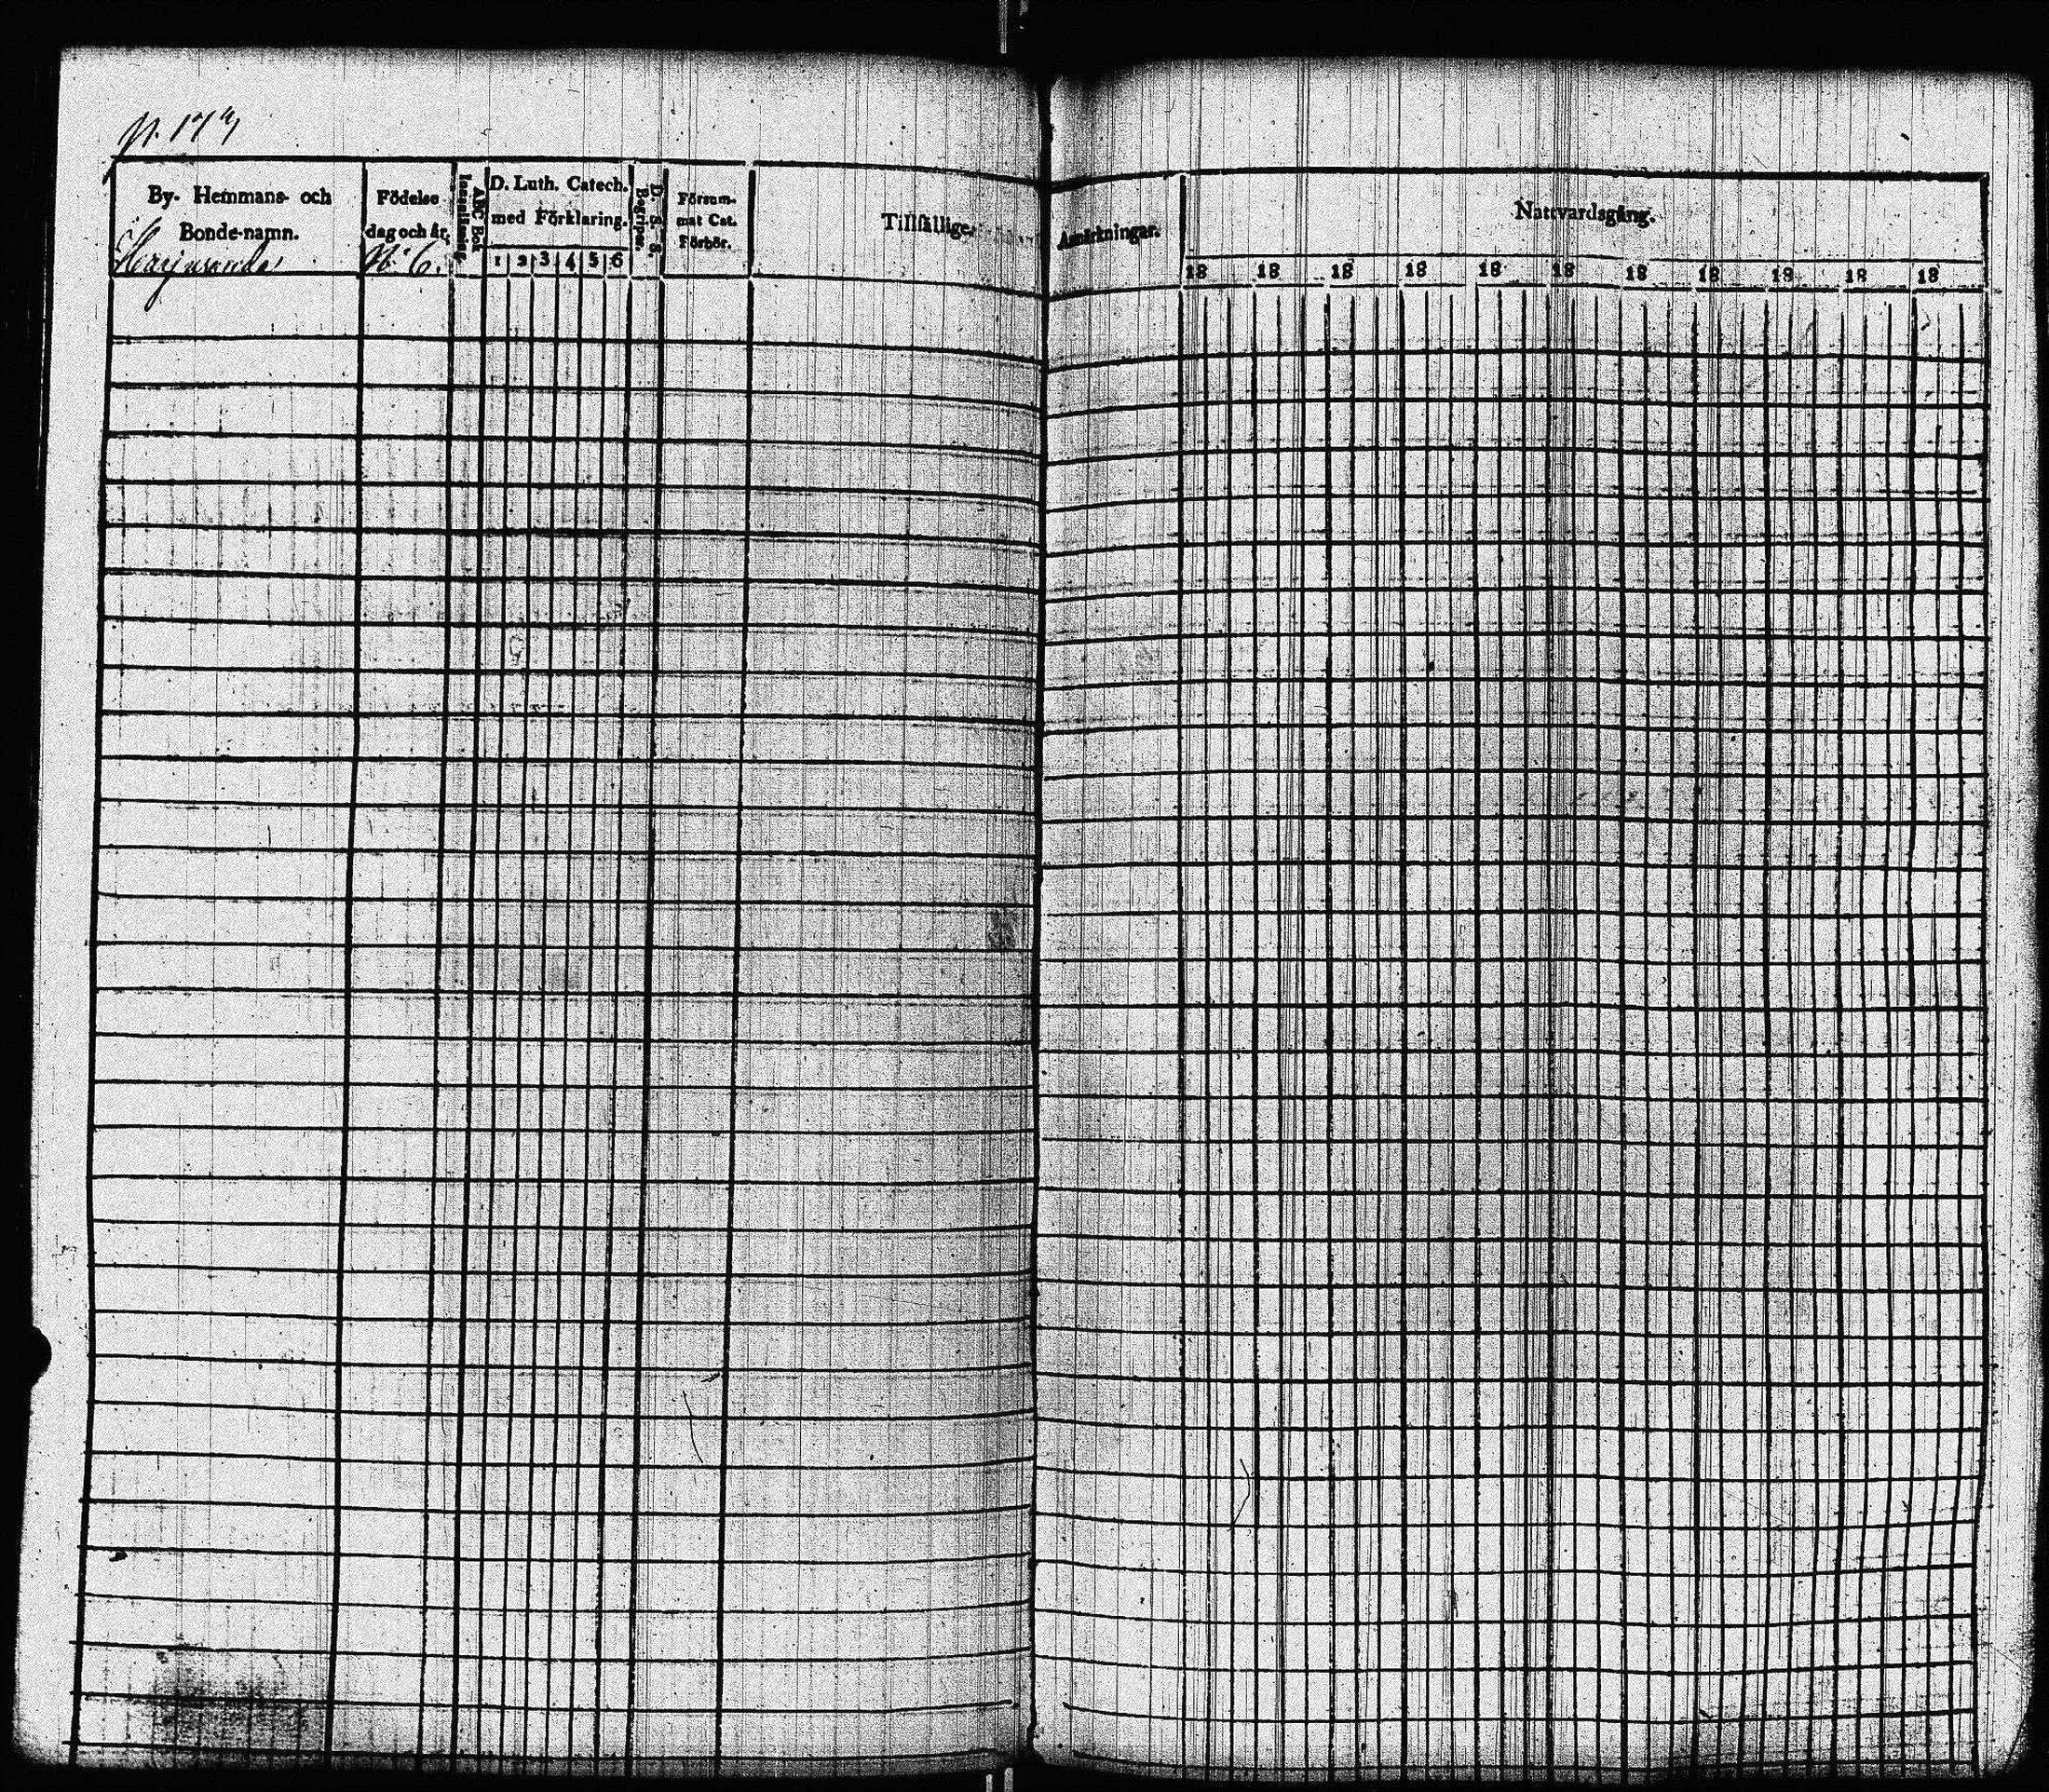 By- Hemmans- och
Bonde-namn.
Födelse
dag och år.
N:o 6.
ABC Bok
Innanläsning.
D. Luth. Catech.
med Förklaring.
1 2 3 4 5 6
D. S. S.
Begriper.
Försum-
mat Cat.
Förhör.
Tillfällige
Anmärkningar.
Nattvardsgång.
18 18 18 18 18 18 18 18 18 18 18